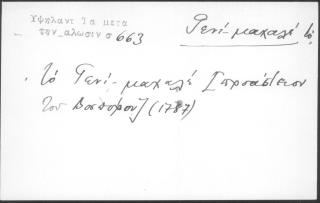 Υψηλαντ Τα μετα
την_αλωσιν σ 663
Γενί-μαχαλέ τό
τό Γενί-μαχαλέ [προάστειον
του Βοσπόρου] (1787)